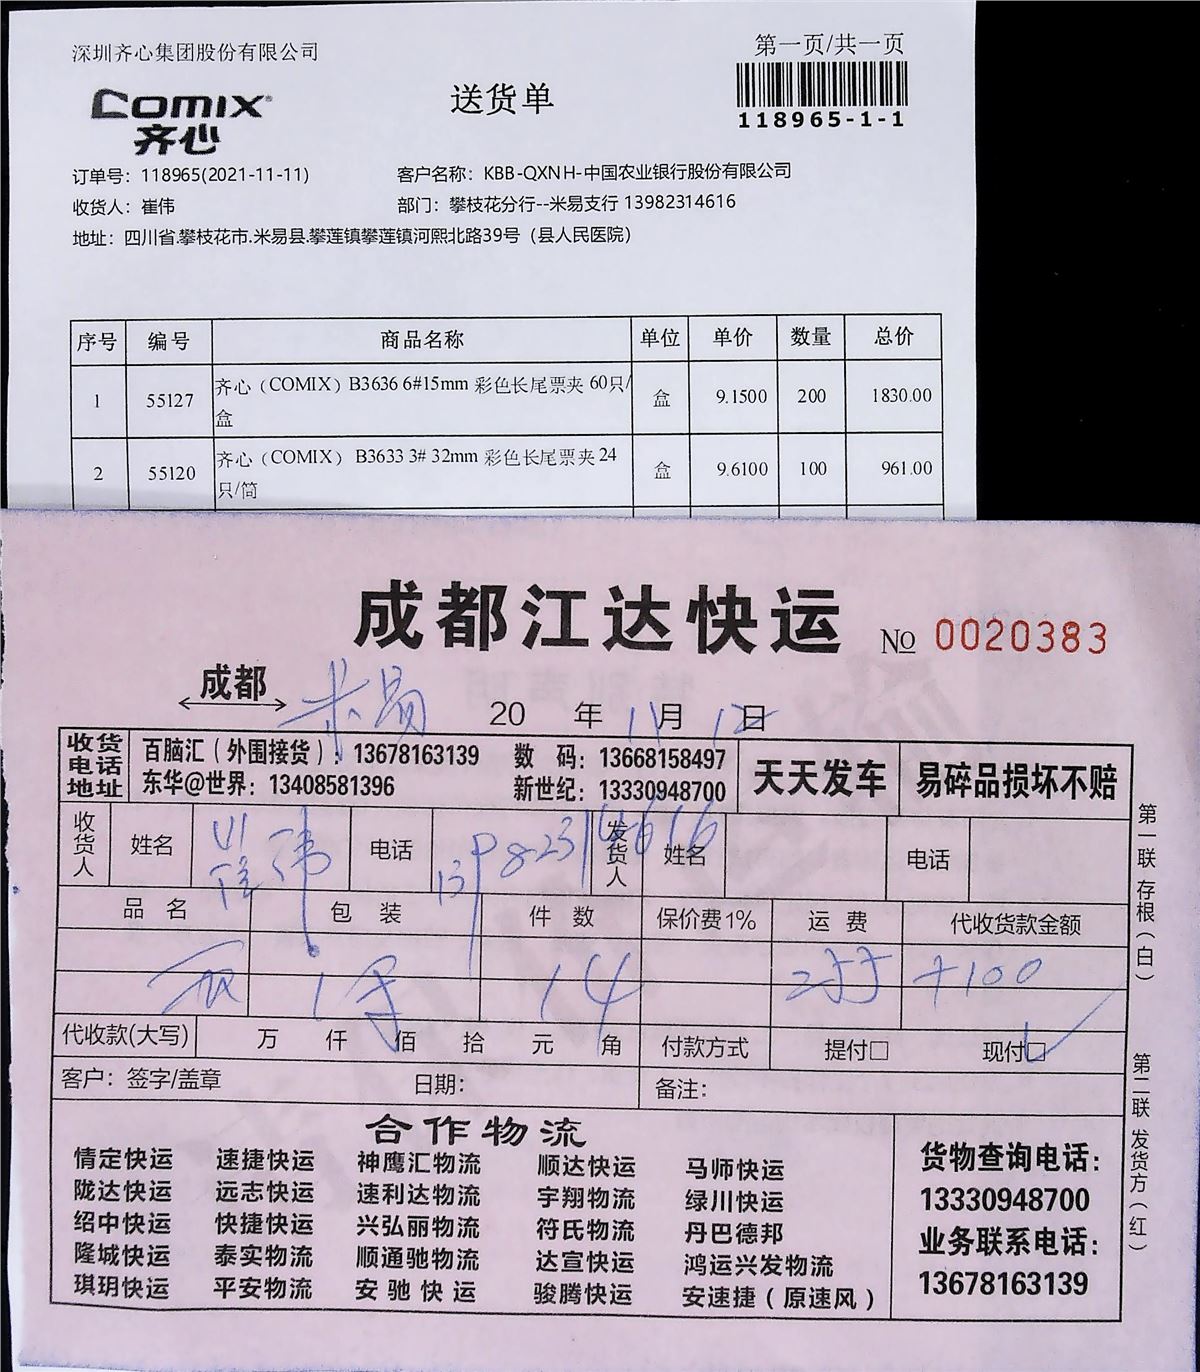 深圳齐心集团股份有限公司
第一页/共一页
COMIX®
齐心
送货单
118965-1-1
订单号：118965(2021-11-11)
客户名称：KBB-QXNH-中国农业银行股份有限公司
收货人：崔伟
部门：攀枝花分行--米易支行 13982314616
地址：四川省.攀枝花市.米易县.攀莲镇攀莲镇河熙北路39号（县人民医院）
序号 编号 商品名称 单位 单价 数量 总价
1 55127 齐心（COMIX）B3636 6#15mm 彩色长尾票夹 60只/盒 盒 9.1500 200 1830.00
2 55120 齐心（COMIX） B3633 3# 32mm 彩色长尾票夹 24只/筒 盒 9.6100 100 961.00
成都江达快运
№ 0020383
成都 米易
20 年 11 月 12 日
收货电话地址
百脑汇（外围接货）：13678163139 数 码：13668158497
东华@世界：13408581396 新世纪：13330948700
天天发车
易碎品损坏不赔
收货人 姓名 崔伟 电话 13982314616 发货人 姓名 电话
品 名 包 装 件 数 保价费1% 运 费 代收货款金额
14 255 +100
代收款(大写) 万 仟 佰 拾 元 角 付款方式 提付□ 现付□✓
客户：签字/盖章 日期： 备注：
合作物流
情定快运 速捷快运 神鹰汇物流 顺达快运 马师快运
陇达快运 远志快运 速利达物流 宇翔物流 绿川快运
绍中快运 快捷快运 兴弘丽物流 符氏物流 丹巴德邦
隆城快运 泰实物流 顺通驰物流 达宣快运 鸿运兴发物流
琪玥快运 平安物流 安驰快运 骏腾快运 安速捷（原速风）
货物查询电话：
13330948700
业务联系电话：
13678163139
第一联 存根（白）
第二联 发货方（红）